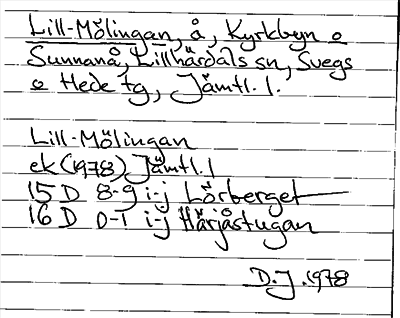 Lill-Mölingan, å, Kyrkbyn o
Sunnanå, Lillhärdals sn, Svegs
o Hede tg, Jämtl. l.
Lill-Mölingan
ek (1978) Jämtl. l
15 D 8-9 i-j Lörberget
16 D 0-1 i-j Härjåstugan
D.J. 1978